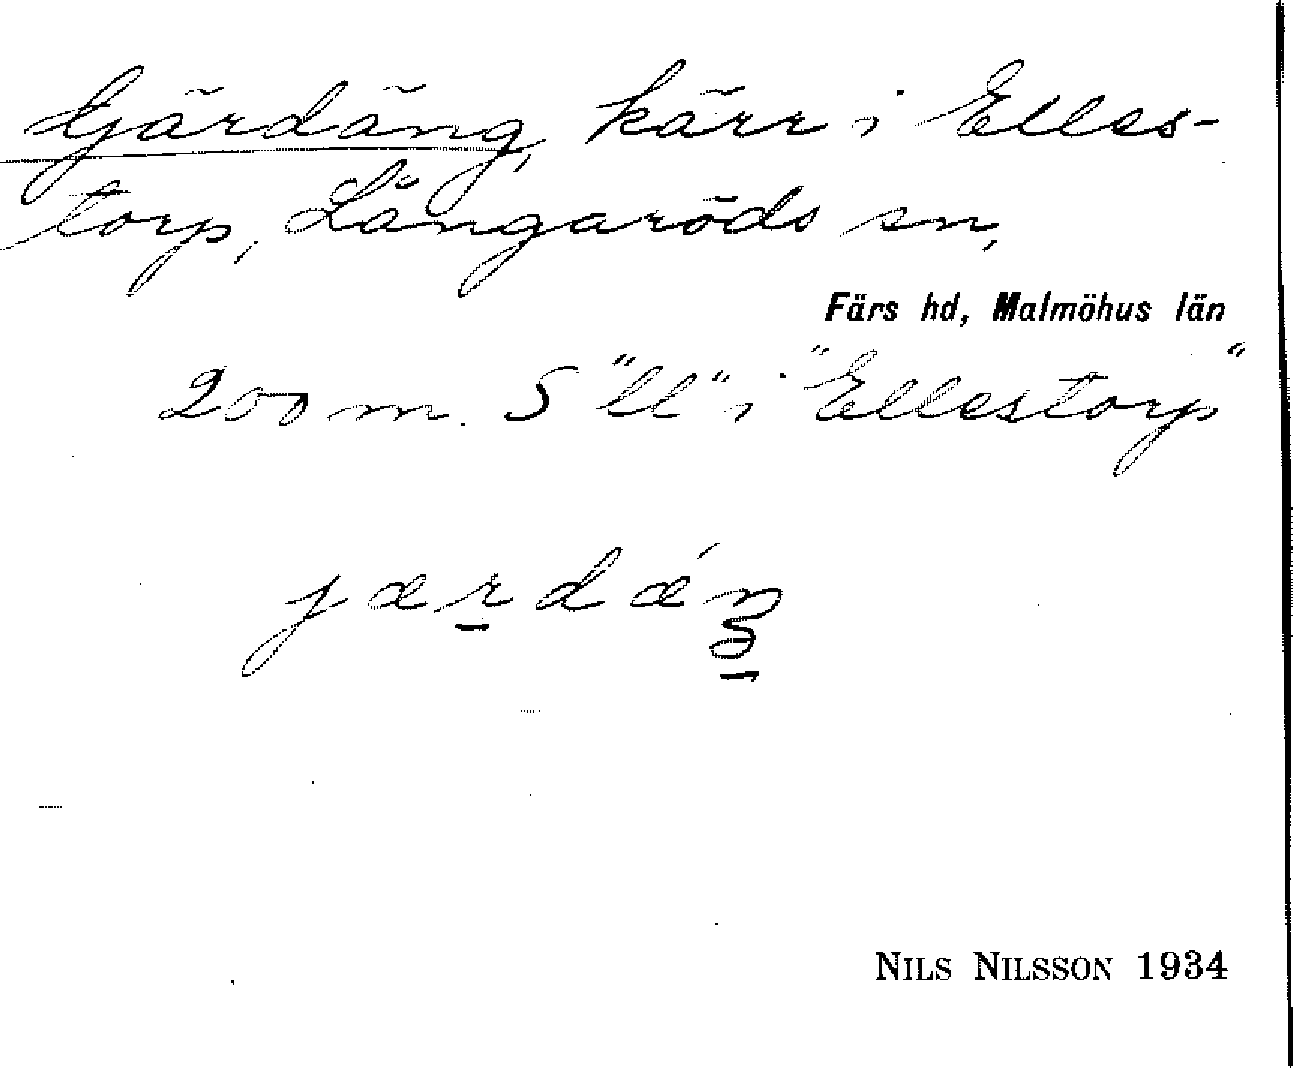 Gärdäng, kärr i Elles-
torp, Långaröds sn,
Färs hd, Malmöhus län
200 m. S "ll" i "Ellestorp"
jærdǽŋ
NILS NILSSON 1934